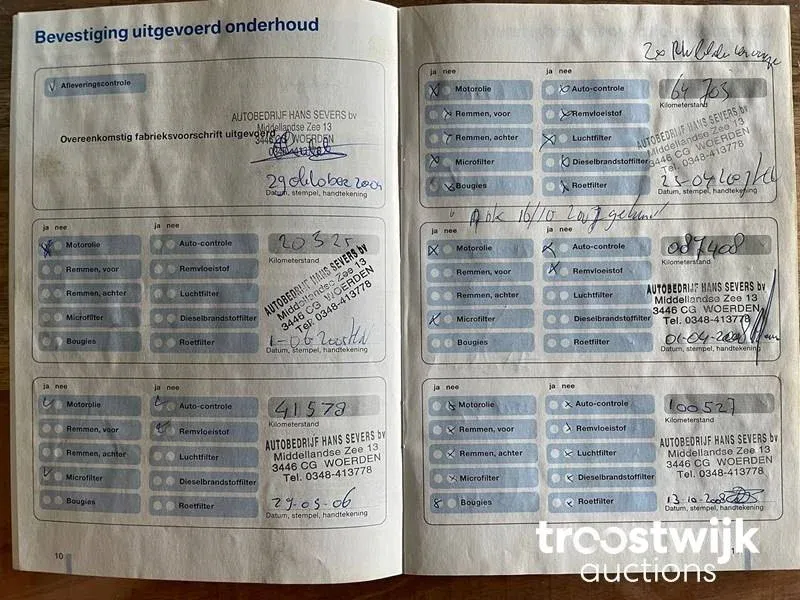 Bevestiging uitgevoerd onderhoud
Afleveringscontrole
Overeenkomstig fabrieksvoorschrift uitgevoerd
AUTOBEDRIJF HANS SEVERS bv
Middellandse Zee 13
3446 CG WOERDEN
29 oktober 2004
Datum, stempel, handtekening
ja nee
ja nee
Motorolie
Auto-controle
Remmen, voor
Remvloeistof
Remmen, achter
Luchtfilter
Microfilter
Dieselbrandstoffilter
Bougies
Roetfilter
20325
Kilometerstand
AUTOBEDRIJF HANS SEVERS bv
Middellandse Zee 13
3446 CG WOERDEN
Tel. 0348-413778
Datum, stempel, handtekening
ja nee
ja nee
Motorolie
Auto-controle
Remmen, voor
Remvloeistof
Remmen, achter
Luchtfilter
Microfilter
Dieselbrandstoffilter
Bougies
Roetfilter
41578
Kilometerstand
AUTOBEDRIJF HANS SEVERS bv
Middellandse Zee 13
3446 CG WOERDEN
Tel. 0348-413778
29-05-06
Datum, stempel, handtekening
10
2x
ja nee
ja nee
Motorolie
Auto-controle
Remmen, voor
Remvloeistof
Remmen, achter
Luchtfilter
Microfilter
Dieselbrandstoffilter
Bougies
Roetfilter
64705
Kilometerstand
AUTOBEDRIJF HANS SEVERS bv
Middellandse Zee 13
3446 CG WOERDEN
Tel. 0348-413778
Datum, stempel, handtekening
ja nee
ja nee
Motorolie
Auto-controle
Remmen, voor
Remvloeistof
Remmen, achter
Luchtfilter
Microfilter
Dieselbrandstoffilter
Bougies
Roetfilter
087408
Kilometerstand
AUTOBEDRIJF HANS SEVERS bv
Middellandse Zee 13
3446 CG WOERDEN
Tel. 0348-413778
01-04-2008
Datum, stempel, handtekening
ja nee
ja nee
Motorolie
Auto-controle
Remmen, voor
Remvloeistof
Remmen, achter
Luchtfilter
Microfilter
Dieselbrandstoffilter
Bougies
Roetfilter
100527
Kilometerstand
AUTOBEDRIJF HANS SEVERS bv
Middellandse Zee 13
3446 CG WOERDEN
Tel. 0348-413778
13-10-2008
Datum, stempel, handtekening
troostwijk
auctions